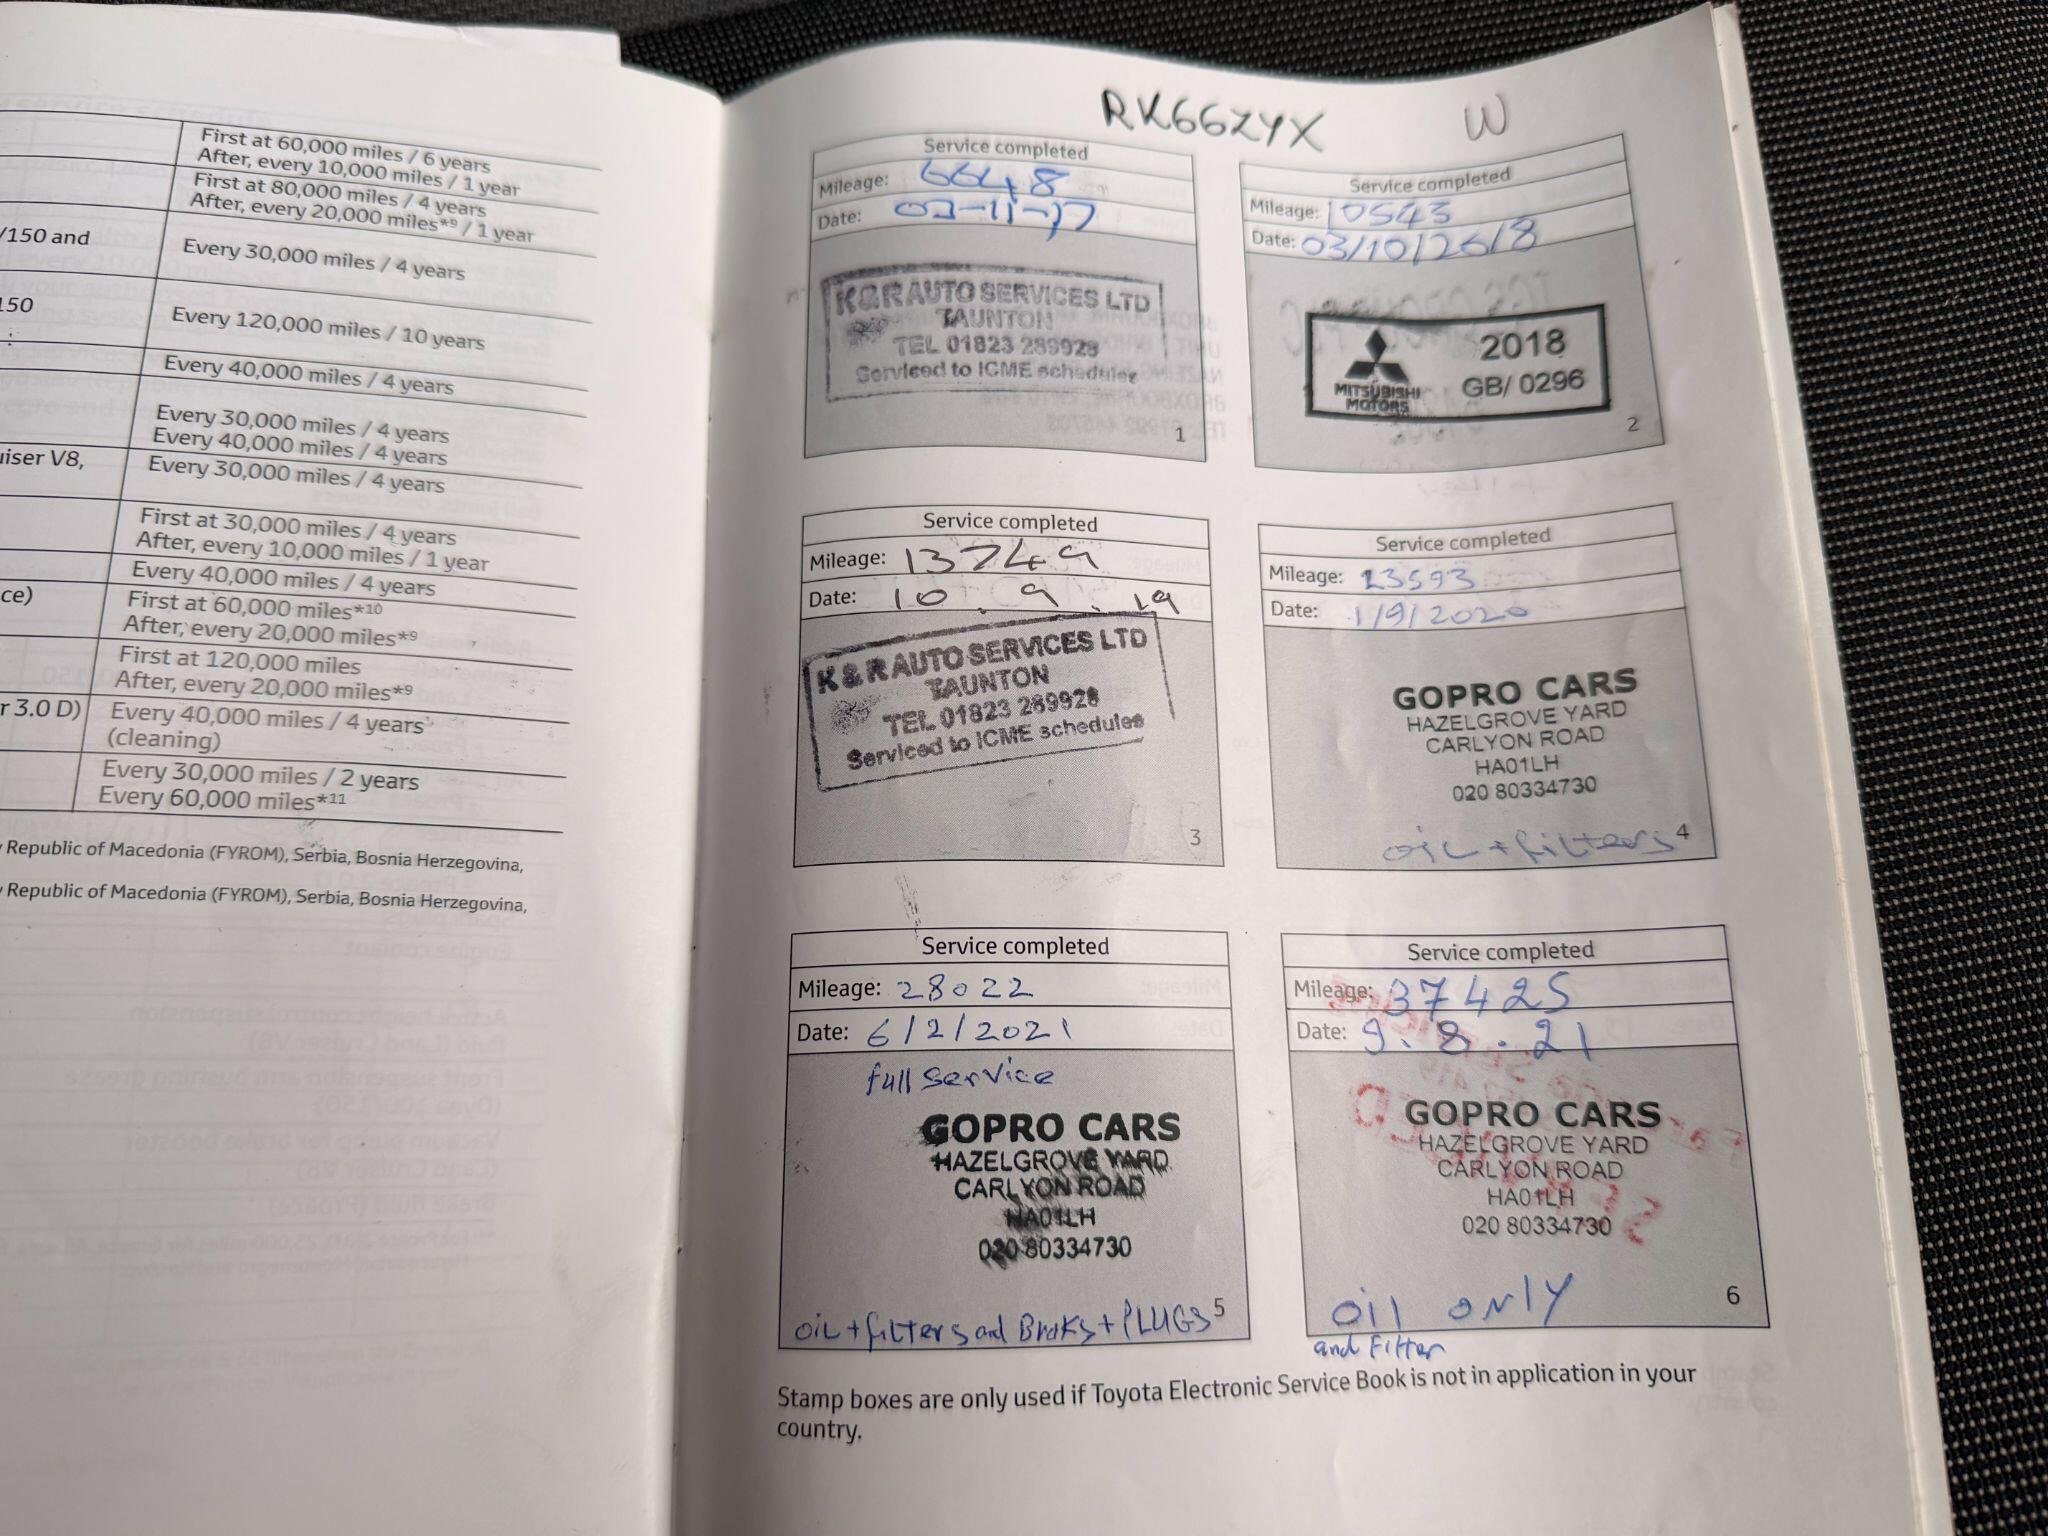 First at 60,000 miles / 6 years
After, every 10,000 miles / 1 year
First at 80,000 miles / 4 years
After, every 20,000 miles*9 / 1 year
/150 and
Every 30,000 miles / 4 years
150
Every 120,000 miles / 10 years
:
Every 40,000 miles / 4 years
Every 30,000 miles / 4 years
Every 40,000 miles / 4 years
uiser V8,
Every 30,000 miles / 4 years
First at 30,000 miles / 4 years
After, every 10,000 miles / 1 year
Every 40,000 miles / 4 years
ce)
First at 60,000 miles*10
After, every 20,000 miles*9
First at 120,000 miles
After, every 20,000 miles*9
r 3.0 D)
Every 40,000 miles / 4 years
(cleaning)
Every 30,000 miles / 2 years
Every 60,000 miles*11
Republic of Macedonia (FYROM), Serbia, Bosnia Herzegovina,
Republic of Macedonia (FYROM), Serbia, Bosnia Herzegovina,
RK66ZYX W
Service completed
Mileage: 6648
Date: 02-11-17
K & R AUTO SERVICES LTD
TAUNTON
TEL 01823 289928
Serviced to ICME schedules
1
Service completed
Mileage: 10543
Date: 03/10/2018
MITSUBISHI
MOTORS
2018
GB/ 0296
2
Service completed
Mileage: 13749
Date: 10.9.19
K & R AUTO SERVICES LTD
TAUNTON
TEL 01823 289928
Serviced to ICME schedules
3
Service completed
Mileage: 23593
Date: 1/9/2020
GOPRO CARS
HAZELGROVE YARD
CARLYON ROAD
HA01LH
020 80334730
oil + filters
4
Service completed
Mileage: 28022
Date: 6/2/2021
full service
GOPRO CARS
HAZELGROVE YARD
CARLYON ROAD
HA01LH
020 80334730
oil + filters and Braks + PLUGS
5
Service completed
Mileage: 37425
Date: 9.8.21
GOPRO CARS
HAZELGROVE YARD
CARLYON ROAD
HA01LH
020 80334730
oil only
6
and Filter
Stamp boxes are only used if Toyota Electronic Service Book is not in application in your
country.